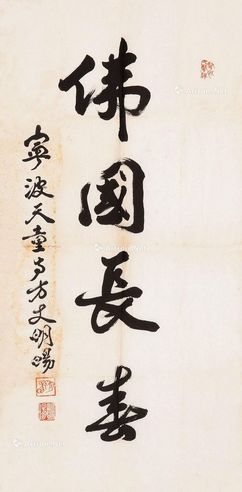 佛國長春
寧波天童寺方丈明暘